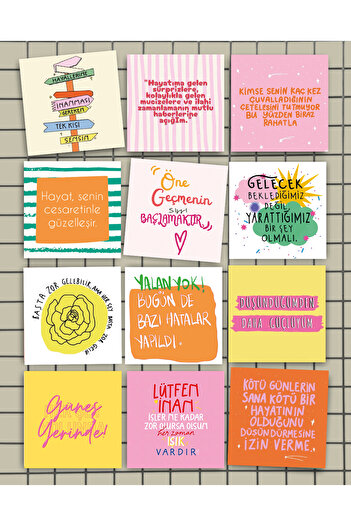 HAYALLERİNE
İNANMASI
GEREKEN
TEK KİŞİ
SENSİN
"Hayatıma gelen
sürprizlere,
kolaylıkla gelen
mucizelere ve ilahi
zamanlamanın mutlu
haberlerine
açığım."
KİMSE SENİN KAÇ KEZ
ÇUVALLADIĞININ
ÇETELESİNİ TUTMUYOR
BU YÜZDEN BİRAZ
RAHATLA
Hayat, senin
cesaretinle
güzelleşir.
Öne
Geçmenin
Sırrı
BAŞLAMAKTIR
GELECEK
BEKLEDİĞİMİZ
DEĞİL
YARATTIĞIMIZ
BİR ŞEY
OLMALI.
BAŞTA ZOR GELEBİLİR AMA HER ŞEY BAŞTA ZOR GELİR
YALAN YOK!
BUGÜN DE
BAZI HATALAR
YAPILDI.
DÜŞÜNDÜĞÜMDEN
DAHA GÜÇLÜYÜM
Güneş
Yerinde!
LÜTFEN
İNAN
İŞLER NE KADAR
ZOR OLURSA OLSUN
her zaman
IŞIK
VARDIR
KÖTÜ GÜNLERİN
SANA KÖTÜ BİR
HAYATININ
OLDUĞUNU
DÜŞÜNDÜRMESİNE
İZİN VERME.